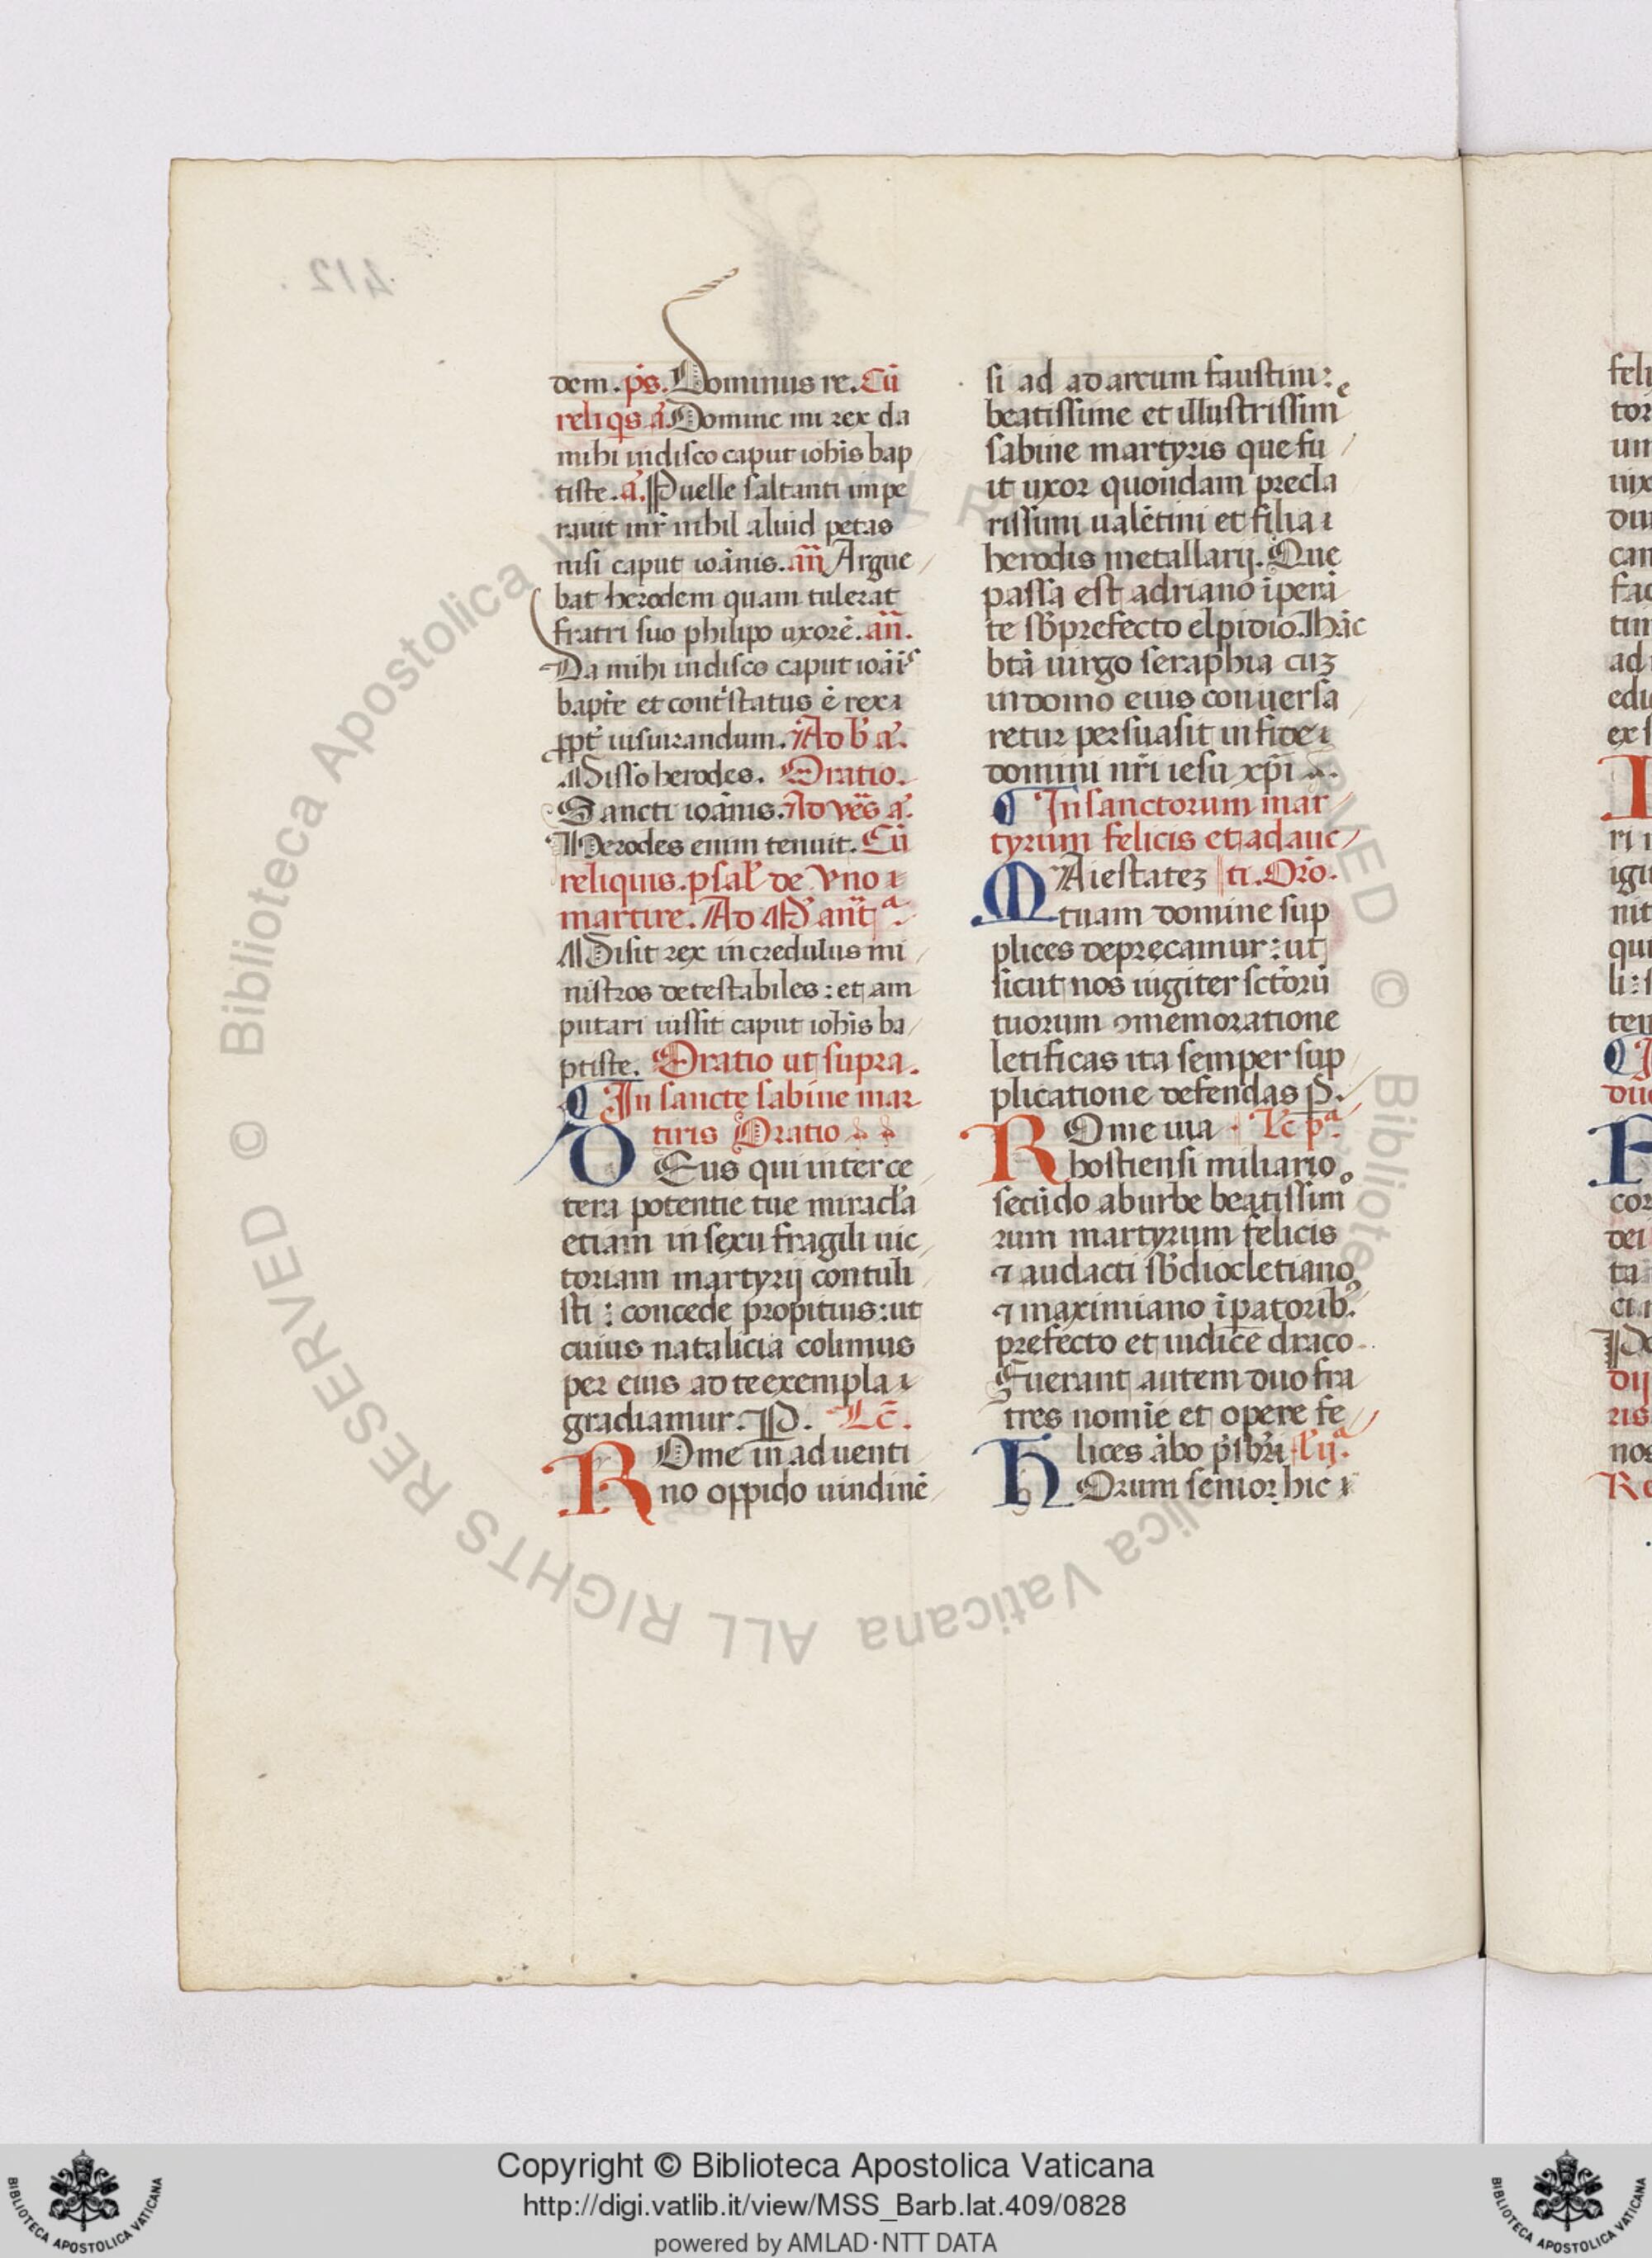 412.
dem. ps̄. Dominus re. Cū
reliqs ā. Domine mi rex da
mihi indisco caput iohīs bap
tiste. ā. Puelle saltanti impe
rauit mr̄ nihil aluid petas
nisi caput ioānis. an̄ Argue
bat herodem quam tulerat
fratri suo philipo uxorē. an̄.
Da mihi indisco caput ioāīs
bapt̄e et cont'status ē rex
ꝓpt' iusiurandum. Ad b ā.
Misso herodes. Oratio.
Sancti ioānis. Ad ves̄ ā.
Herodes enim tenuit. Cū
reliquis. psal' de vno
martire. Ad M ant̄ᵃ.
Misit rex incredulus mi
nistros detestabiles: et am
putari iussit caput iohīs ba
ptiste. Oratio ut supra.
¶ In sancte sabine mar
tiris Oratio
DEus qui inter ce
tera potentie tue miracl'a
etiam in sexu fragili uic
toriam martyrij contuli
sti: concede propitius: ut
cuius natalicia colimus
per eius ad te exempla
gradiamur. P. Lc̄.
ROme in aduenti
no oppido uindinē
si ad ad arcum faustini:
beatissime et illustrissime
sabine martyris que fu
it uxor quondam precla
rissimi ualētini et filia
herodis metallarij. Que
passa est adriano īperā
te sb̄ prefecto elpidio. Hāc
btā uirgo seraphia cuȝ
in domo eius conuersa
retur persuasit in fide
domini nr̄i iesu xp̄i
¶ In sanctorum mar
tyrum felicis et adauc
MAiestateȝ ti. Oro.
tuam domine sup
plices deprecamur: ut
sicut nos iugiter sctōrū
tuorum ɔmemoratione
letificas ita semper sup
plicatione defendas P.
ROme uia Lc̄ pᵃ.
hostiensi miliario
secūdo ab urbe beatissimo
rum martyrum felicis
⁊ audacti sb̄ diocletiano
⁊ maximiano īpatorib᾿
prefecto et iudice draco
Fuerant autem duo fra
tres nomīe et opere fe
lices ābo p̄sbr̄i l' ijᵃ.
HOrum senior hic
© Biblioteca Apostolica Vaticana ALL RIGHTS RESERVED
Copyright © Biblioteca Apostolica Vaticana
http://digi.vatlib.it/view/MSS_Barb.lat.409/0828
powered by AMLAD·NTT DATA
BIBLIOTECA APOSTOLICA VATICANA
BIBLIOTECA APOSTOLICA VATICANA